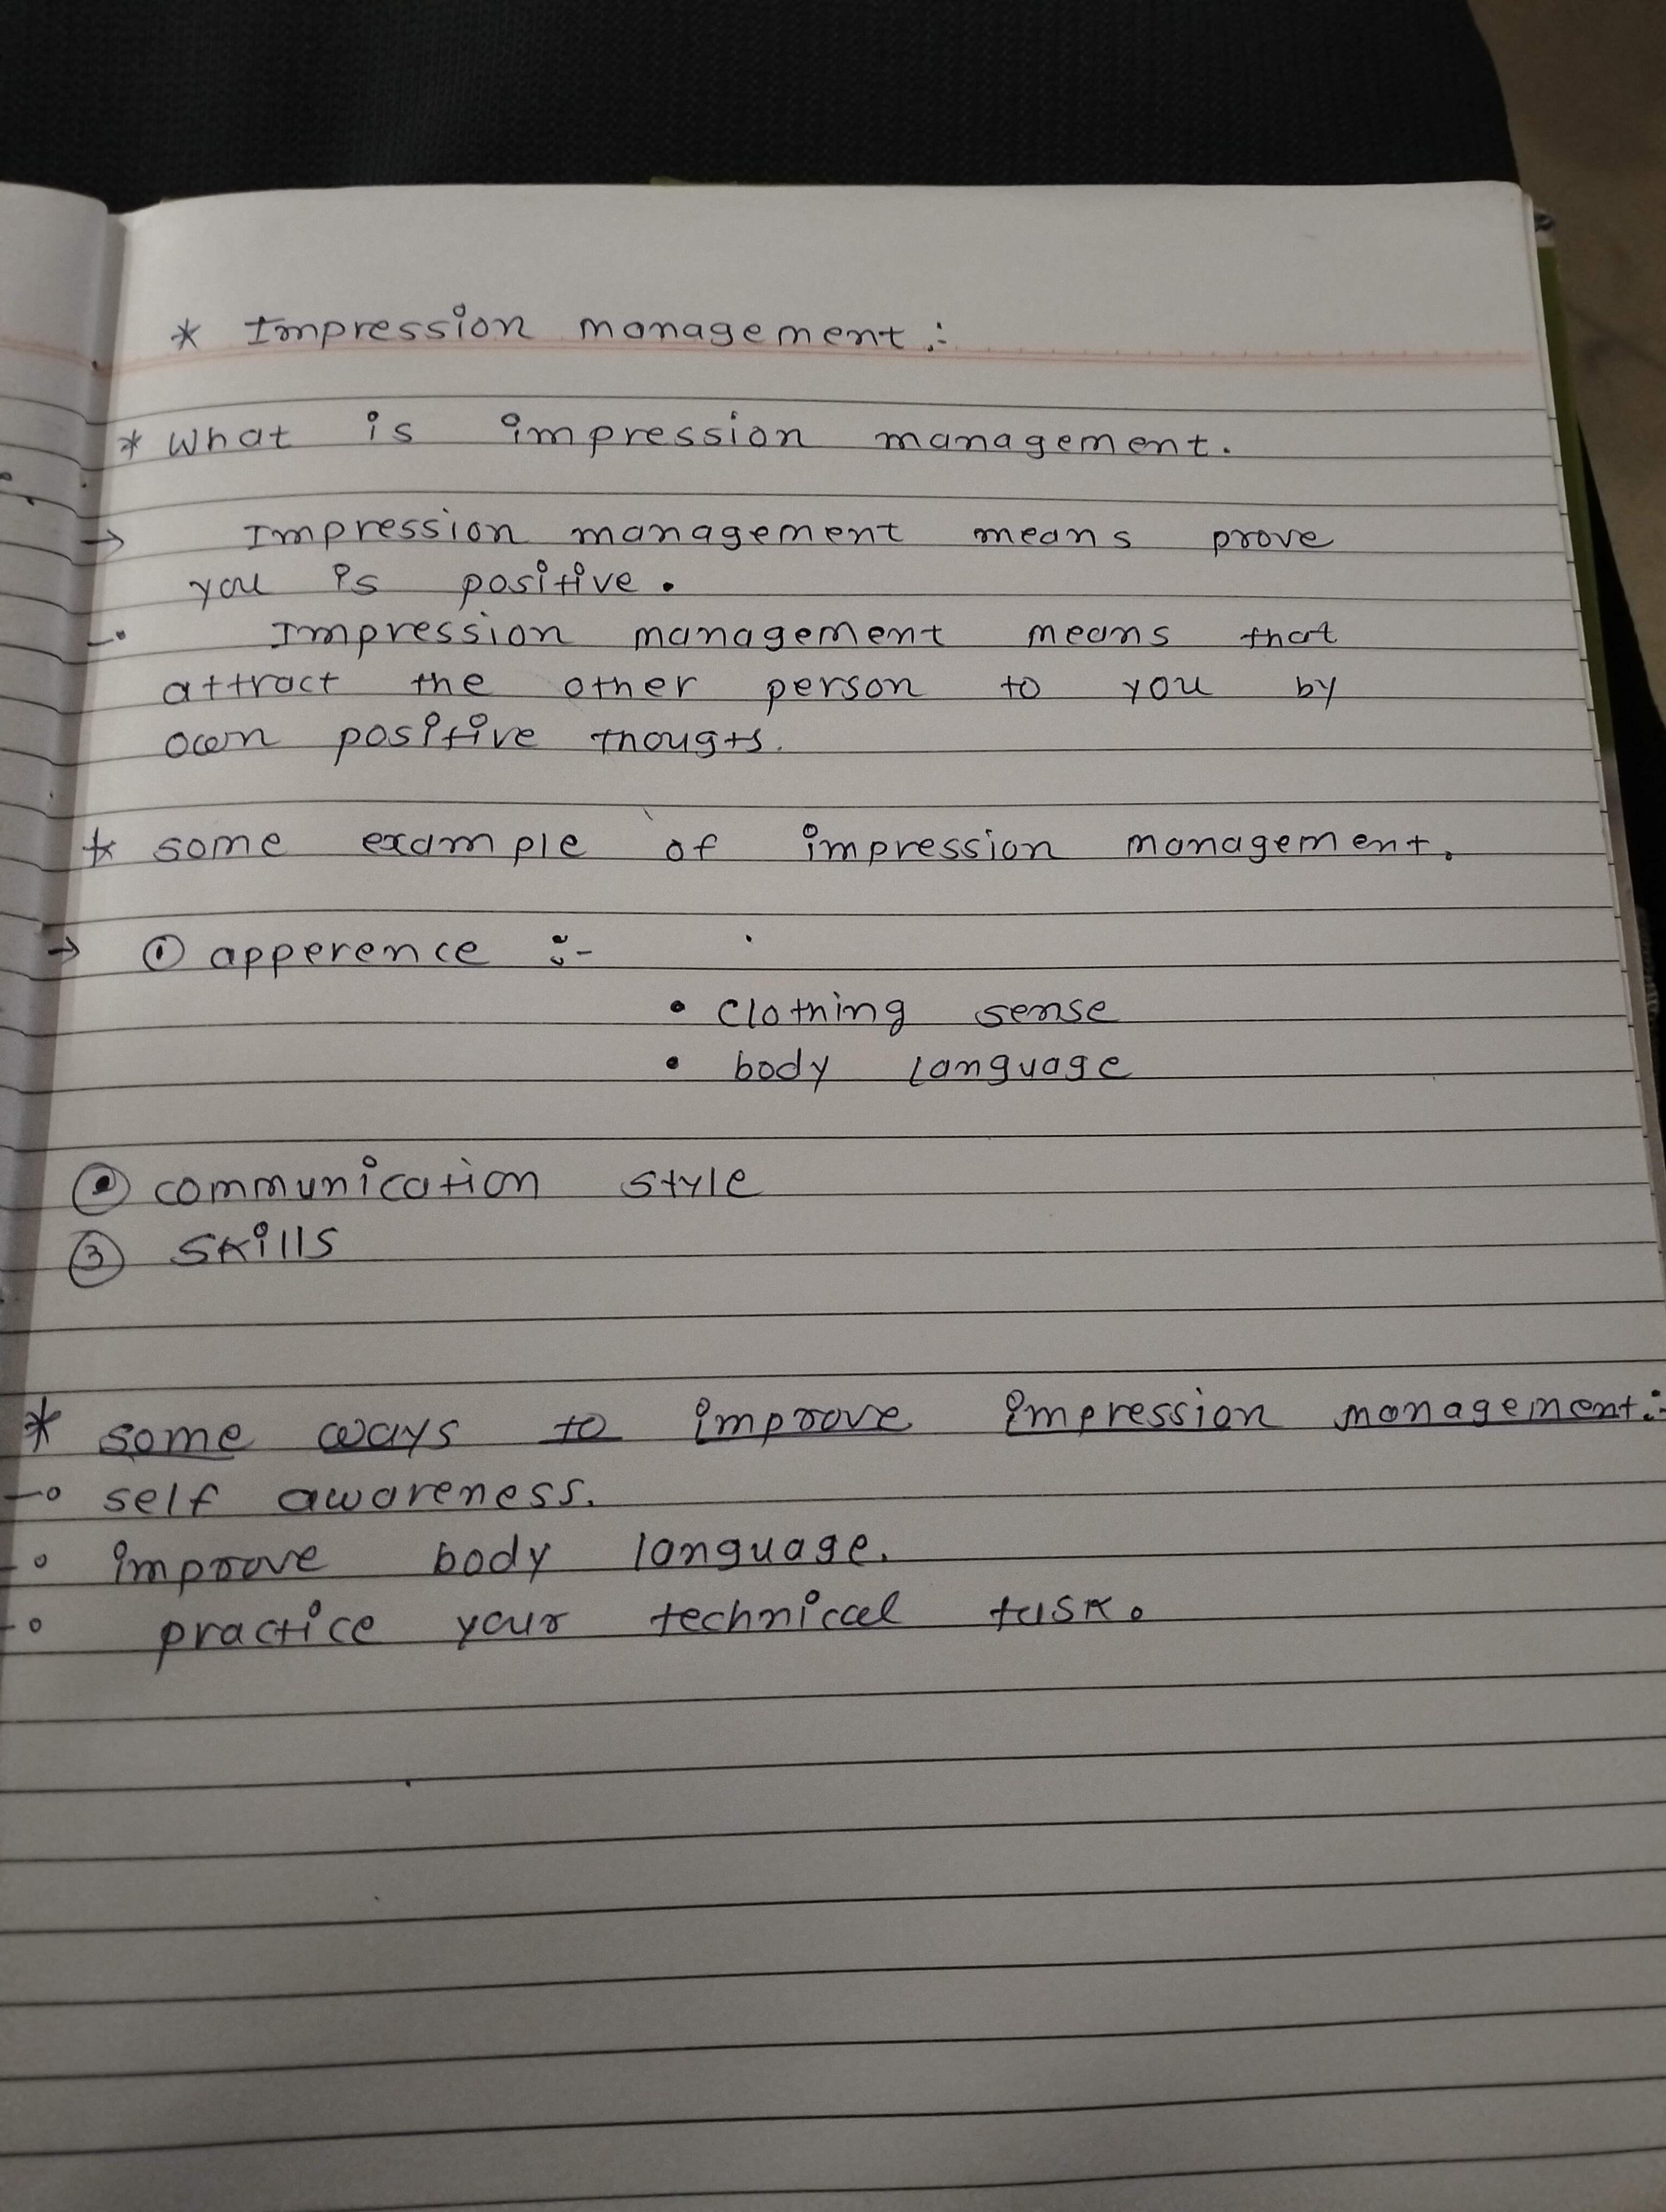 * Impression management :-
* What is impression management.
→ Impression management means prove
you is positive.
-• Impression management means that
attract the other person to you by
own positive thougts.
* some example of impression management.
→ ① apperence :-
• clothing sense
• body language
② communication style
③ skills
* some ways to improve impression management :-
-o self awareness.
-o improve body language.
-o practice your technical task.